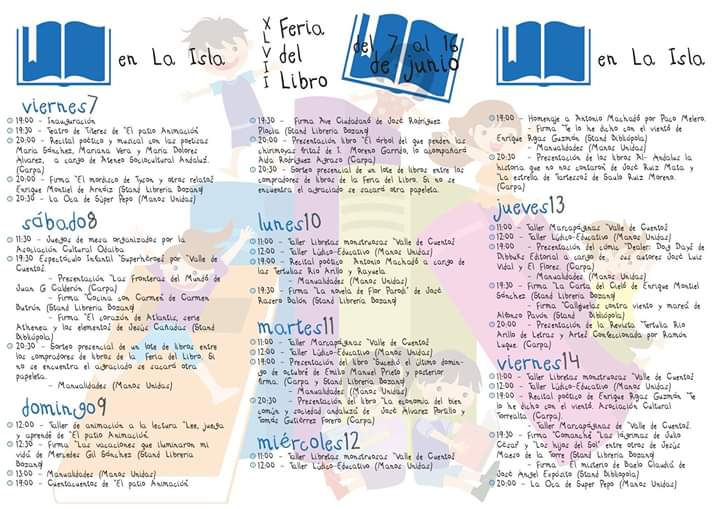 en La Isla
XLVII Feria
del
Libro
del 7 al 16
de junio
en La Isla
viernes 7
19:00 - Inauguración
19:30 - Teatro de Títeres de "El patio Animación"
20:00 - Recital poético y musical con las poetisas
María Sánchez, Mariana Vera y María Dolores
Álvarez, a cargo de Ateneo Sociocultural Andaluz.
(Carpa)
20:00 - Firma "El mordisco de Tyson y otros relatos"
Enrique Montiel de Arnáiz (Stand Librería Bozano)
20:30 - La Oca de Súper Pepo (Manos Unidas)
sábado 8
11:30 - Juegos de mesa organizados por la
Asociación Cultural Odaiba
19:30 Espectáculo Infantil "Superhéroes" por "Valle de
Cuentos".
- Presentación "Las Fronteras del Mundo" de
Juan G Calderón (Carpa)
- Firma "Cocina con Carmen" de Carmen
Butrón (Stand Librería Bozano)
- Firma "El corazón de Atlantis, serie
Athenea y los elementos" de Jesús Cañadas (Stand
Bibliópola)
20:30 - Sorteo presencial de un lote de libros entre
los compradores de libros de la Feria del Libro. Si
no se encuentra el agraciado se sacará otra
papeleta.
- Manualidades (Manos Unidas)
domingo 9
12:00 - Taller de animación a la lectura "Lee, juega
y aprende" de "El patio Animación"
12:30 - Firma "Las vacaciones que iluminaron mi
vida" de Mercedes Gil Sánchez (Stand Librería
Bozano)
13:00 - Manualidades (Manos Unidas)
19:00 - Cuentacuentos de "El patio Animación"
19:30 - Firma "Ave Ciudadano" de José Rodríguez
Placia (Stand Librería Bozano)
20:00 - Presentación libro "El árbol del que penden las
chirimoyas gritas" de I. Moreno Garrido, lo acompañará
Aída Rodríguez Agraso (Carpa)
20:30 - Sorteo presencial de un lote de libros entre los
compradores de libros de la Feria del Libro. Si no se
encuentra el agraciado se sacará otra papeleta.
(Carpa)
lunes 10
11:00 - Taller Libretas monstruosas "Valle de Cuentos"
12:00 - Taller Lúdico-Educativo (Manos Unidas)
19:00 - Recital poético Antonio Machado a cargo de
las Tertulias Río Arillo y Rayuela
- Manualidades (Manos Unidas)
19:30 - Firma "La novela de Flor Parodi" de José
Rasero Balón (Stand Librería Bozano)
martes 11
11:00 - Taller Marcapáginas "Valle de Cuentos"
12:00 - Taller Lúdico-Educativo (Manos Unidas)
19:00 - Presentación del libro "Sucedió el último domin-
go de octubre" de Emilio Manuel Prieto y posterior
firma. (Carpa y Stand Librería Bozano)
- Manualidades (Manos Unidas)
20:30 - Presentación del libro "La economía del bien
común y sociedad andaluza" de José Álvarez Portillo y
Tomás Gutiérrez Forero (Carpa)
miércoles 12
11:00 - Taller Libretas monstruosas "Valle de Cuentos"
12:00 - Taller Lúdico-Educativo (Manos Unidas)
19:00 - Homenaje a Antonio Machado por Paco Melero.
- Firma "Te lo he dicho con el viento" de
Enrique Rojas Guzmán (Stand Bibliópola)
- Manualidades (Manos Unidas)
20:30 - Presentación de los libros "Al-Andalus la
historia que no nos contaron" de José Ruiz Mata y
"La estrella de Tartessos" de Saulo Ruiz Moreno.
(Carpa)
jueves 13
11:00 - Taller Marcapáginas "Valle de Cuentos"
12:00 - Taller Lúdico-Educativo (Manos Unidas)
19:00 - Presentación del cómic "Dealer: Dog Days" de
Dibbuks Editorial a cargo de sus autores José Luis
Vidal y El Flores. (Carpa)
- Manualidades (Manos Unidas)
19:30 - Firma "La Carta del Cielo" de Enrique Montiel
Sánchez (Stand Librería Bozano)
- Firma "Calligüelas contra viento y marea" de
Alfonso Pavón (Stand Bibliópola)
20:00 - Presentación de la Revista "Tertulia Río
Arillo de Letras y Artes" Confeccionada por Ramón
Luque. (Carpa)
viernes 14
11:00 - Taller Libretas monstruosas "Valle de Cuentos"
12:00 - Taller Lúdico-Educativo (Manos Unidas)
19:00 - Recital poético de Enrique Rojas Guzmán "Te
lo he dicho con el viento". Asociación Cultural
Torrealta (Carpa).
Taller Marcapáginas de "Valle de Cuentos".
19:30 - Firma "Comanche" "Las lágrimas de Julio
César" y "Los hijos del Sol" entre otros de Jesús
Maeso de la Torre (Stand Librería Bozano)
- Firma - El misterio de Baelo Claudia" de
José Ángel Expósito (Stand Bibliópola)
20:00 - La Oca de Super Pepo (Manos Unidas)